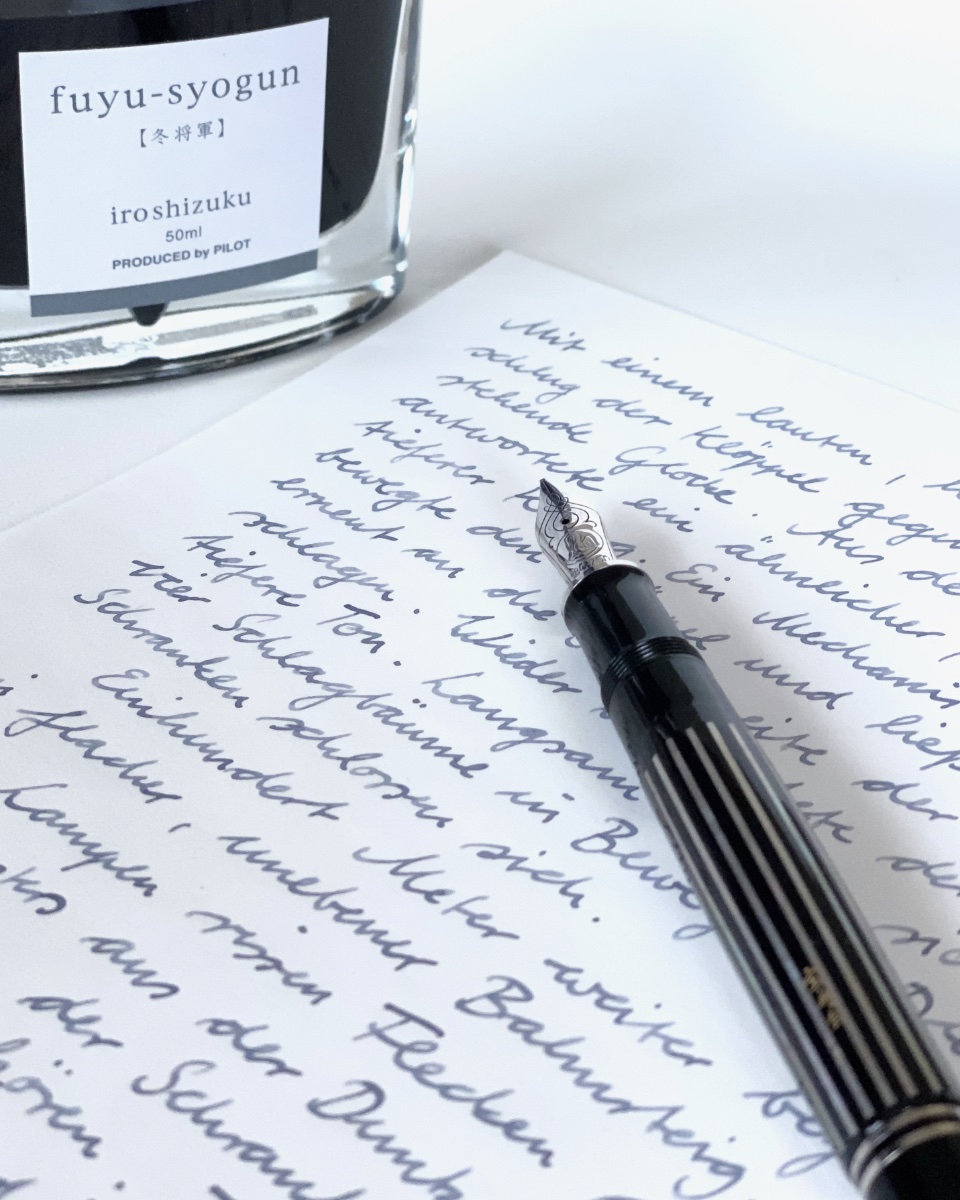 fuyu-syogun
【冬将軍】
iroshizuku
50ml
PRODUCED by PILOT
Mit einem lauten,
schlug der Klöppel gegen
stehende Glocke. Aus der
antwortete ein ähnlicher,
tieferer Ein Mechanis
bewegte den und ließ
erneut an die der
schlagen. Wieder
tiefere Ton. Langsam
vier Schlagbäume in Beweg
Schranken schlossen sich.
Einhundert Meter weiter
flacher, unebener Bahnsteig
Lampen rissen Flecken
aus der Dunk
der Schran